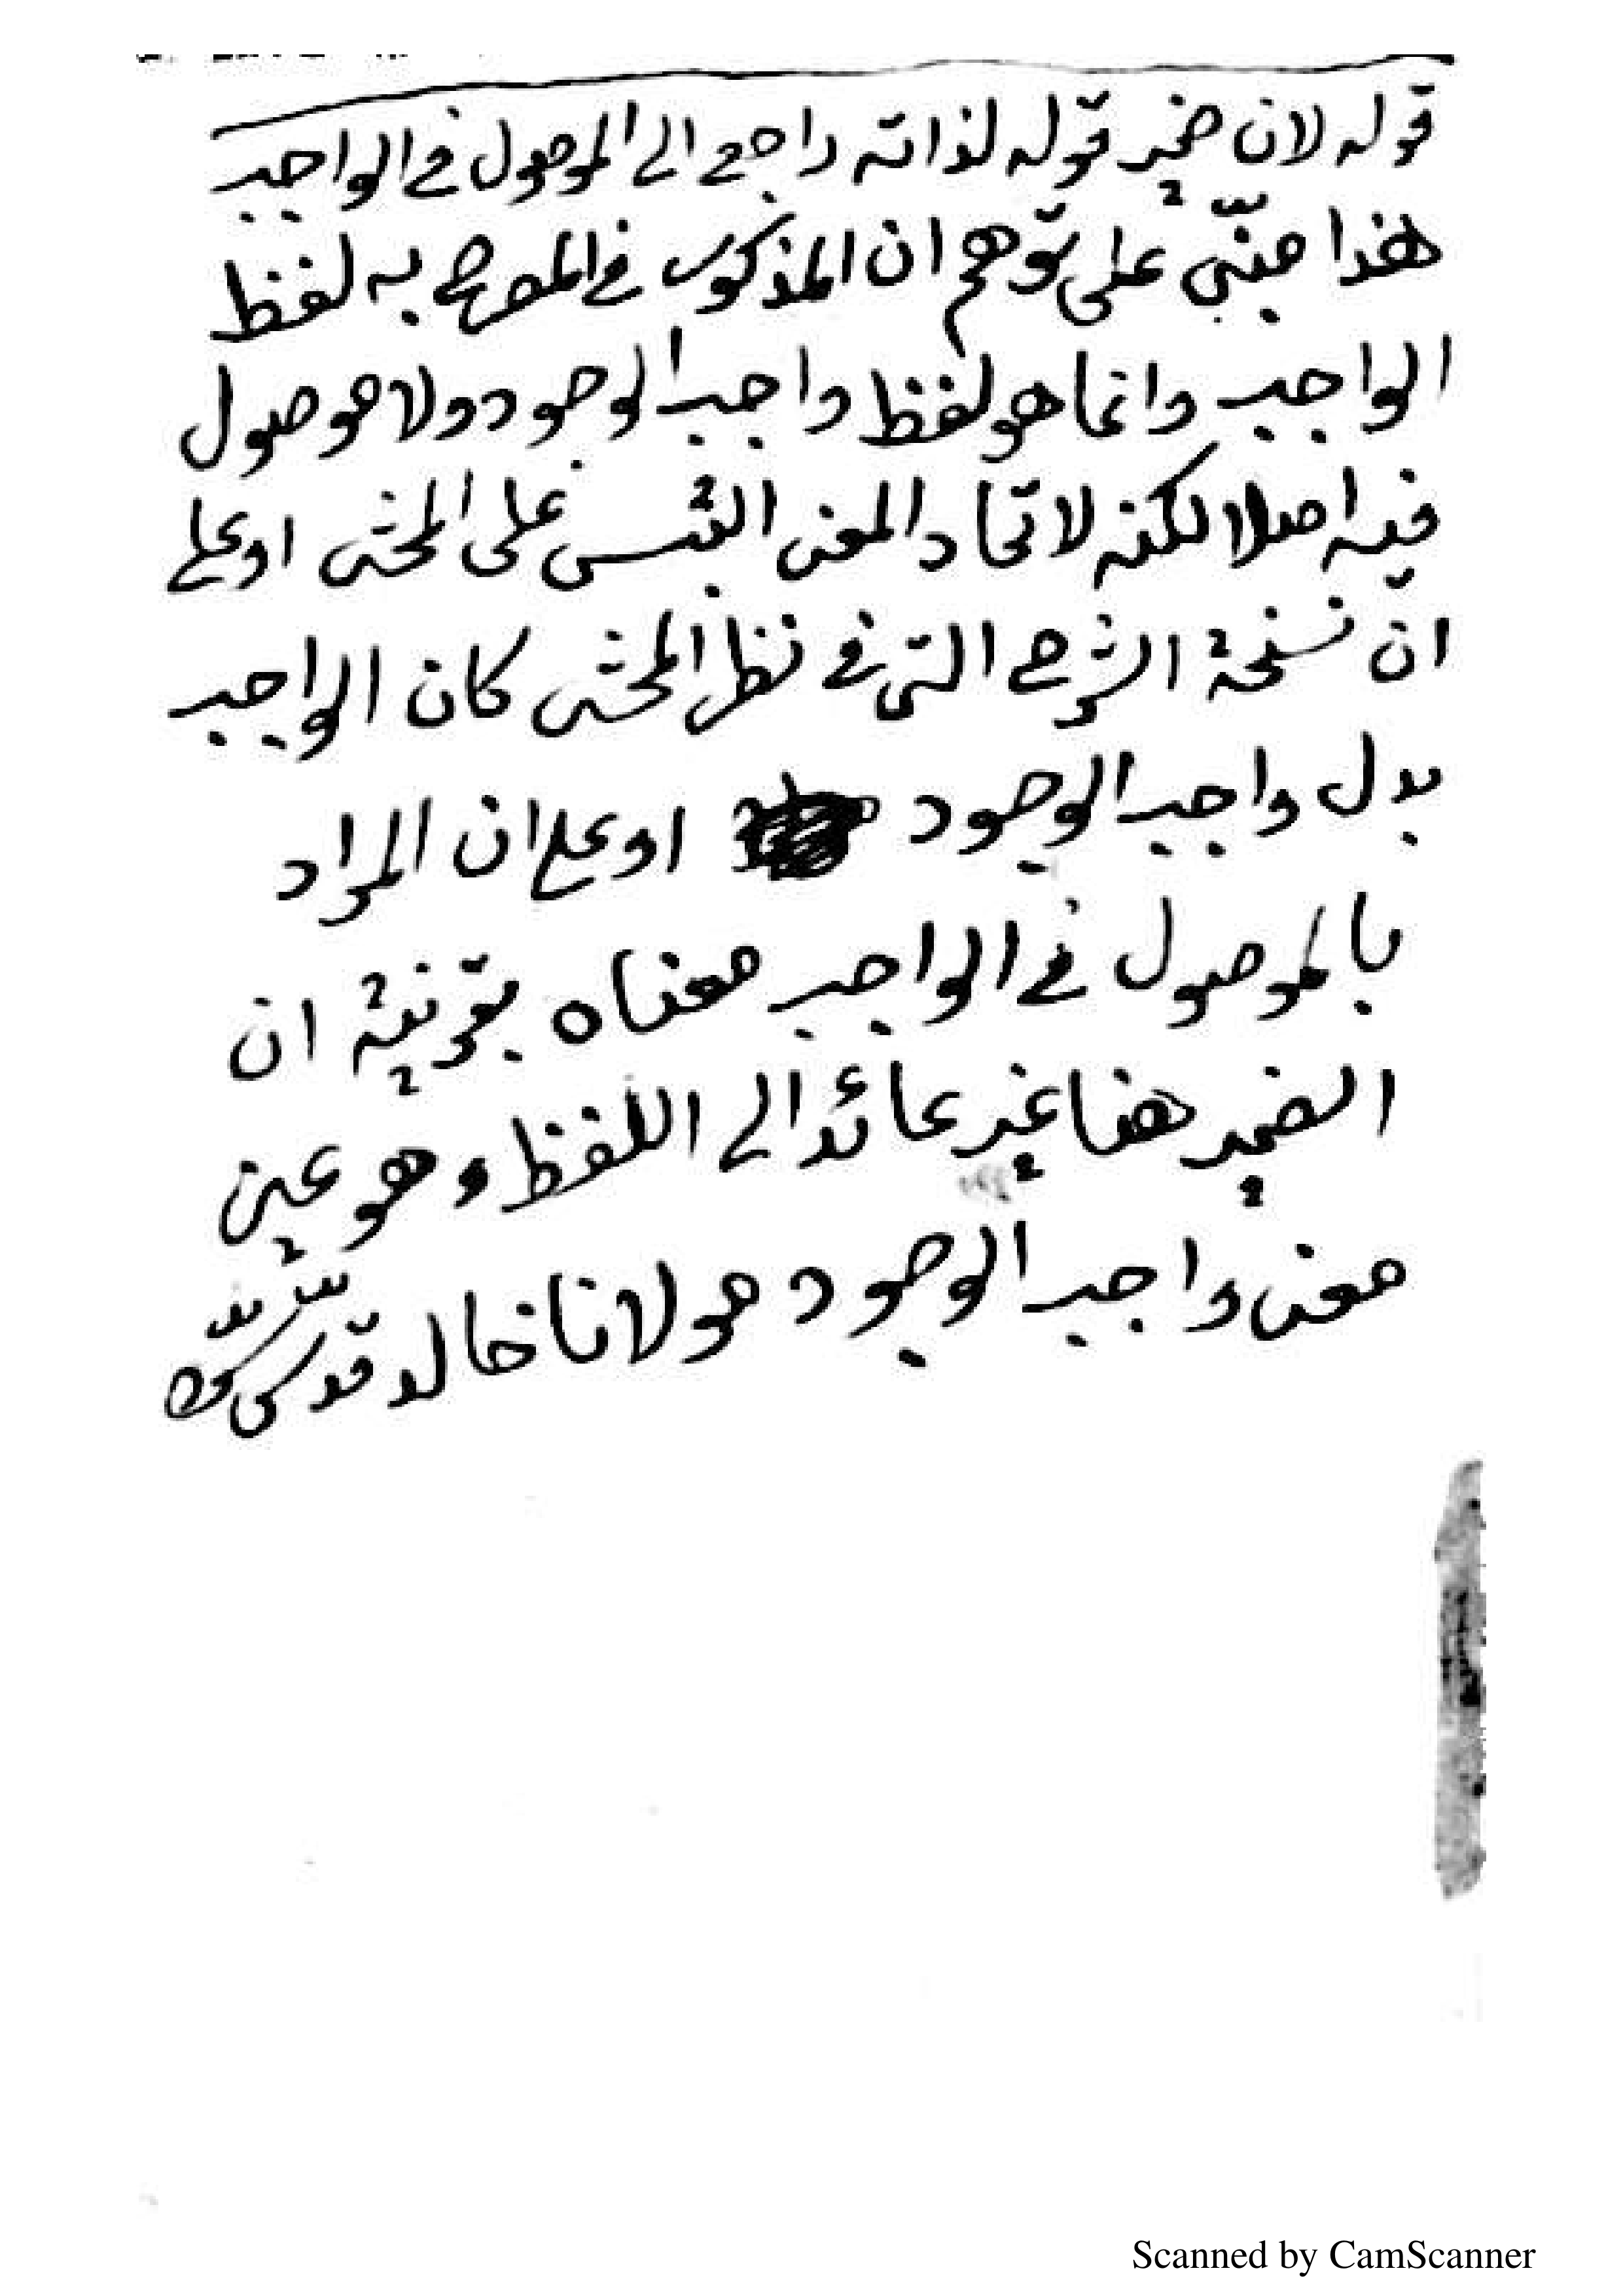 قوله لان ضمير قوله لذاته راجع الى الموصول في الواجب
هذا مبنيّ على توهم ان المذكور في المصرح به لفظ
الواجب وانما هو لفظ واجب الوجود ولا موصول
فيه اصلا لكنه لاتحاد المعنى التبس على المحشى او على
ان نسخة الشرح التى في نظر المحشى كان الواجب
بدل واجب الوجود او على ان المراد
بالموصول في الواجب معناه بقرينة ان
الضمير هنا غير عائد الى اللفظ وهو عين
معنى واجب الوجود مولانا خالد قدس سرّه
Scanned by CamScanner